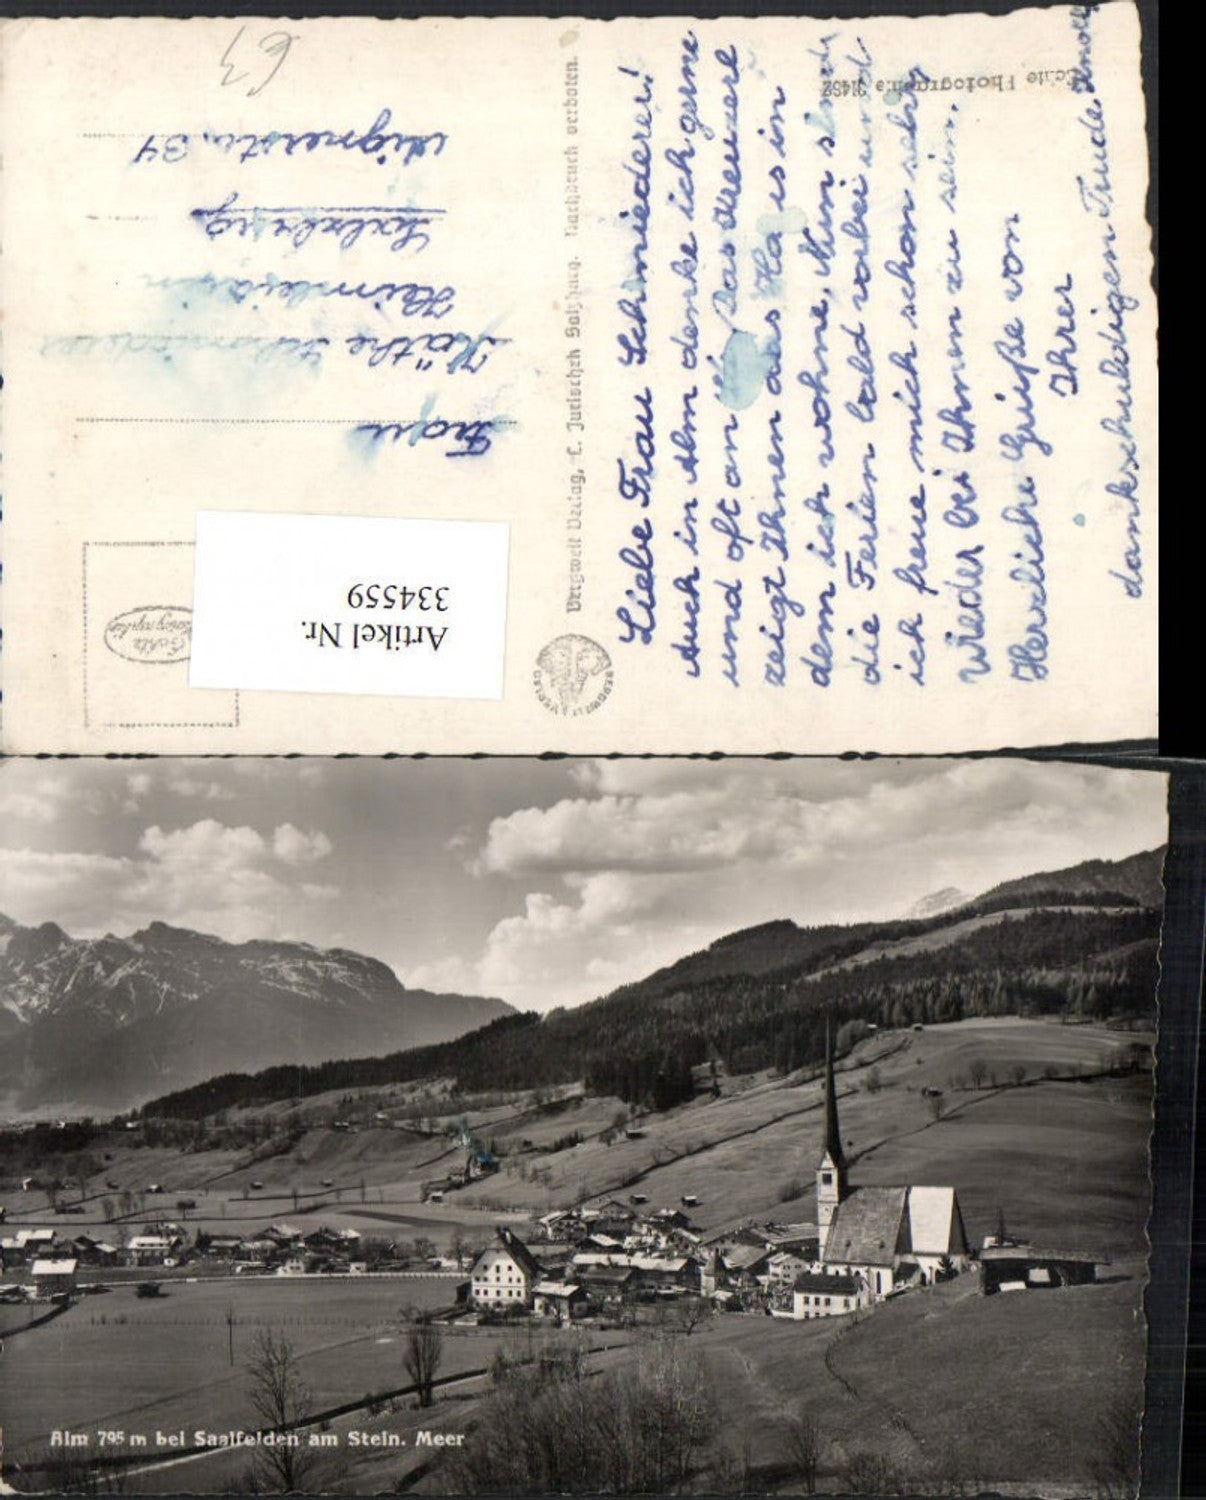 Liebe Frau Schmiederer!
Auch in Alm denke ich gerne
und oft an Das Kreuzere
zeigt Ihnen das Haus in
dem ich wohne. Nun sind
die Ferien bald vorbei und
ich freue mich schon sehr
wieder bei Ihnen zu sein.
Herzliche Grüße von
Ihrer
dankschuldigen Trude
Echte Photographie
Bergwelt Verlag, C. Jurischek Salzburg. Nachdruck verboten.
BERGWELT VERLAG
Frau
Käthe Schmiederer
Salzburg
34
Echte
Photographie
Artikel Nr.
334559
Alm 795 m bei Saalfelden am Stein. Meer